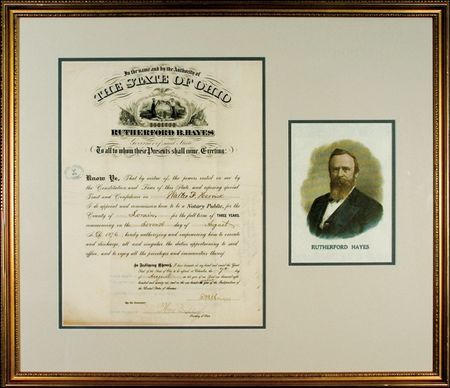 In the name and by the Authority of
THE STATE OF OHIO
RUTHERFORD B. HAYES
Governor of said State
To all to whom these Presents shall come, Greeting:
Know Ye, That by virtue of the powers vested in me by
the Constitution and Laws of this State and reposing special
Trust and Confidence in Walter F.
I do appoint and commission him to be a Notary Public, for the
County of Lorain, for the full term of THREE YEARS,
commencing on the day of August
A.D. 1876, hereby authorizing and empowering him to execute
and discharge, all and singular the duties appertaining to said
office, and to enjoy all the privileges and immunities thereof
In Testimony Whereof, I have hereunto set my hand and caused the Great
Seal of the State of Ohio to be affixed at Columbus, the 7th
day of August in the year of our Lord one thousand eight
hundred and seventy six and in the one year of the Independence of
the United States of America.
By the Governor
Secretary of State
RUTHERFORD HAYES